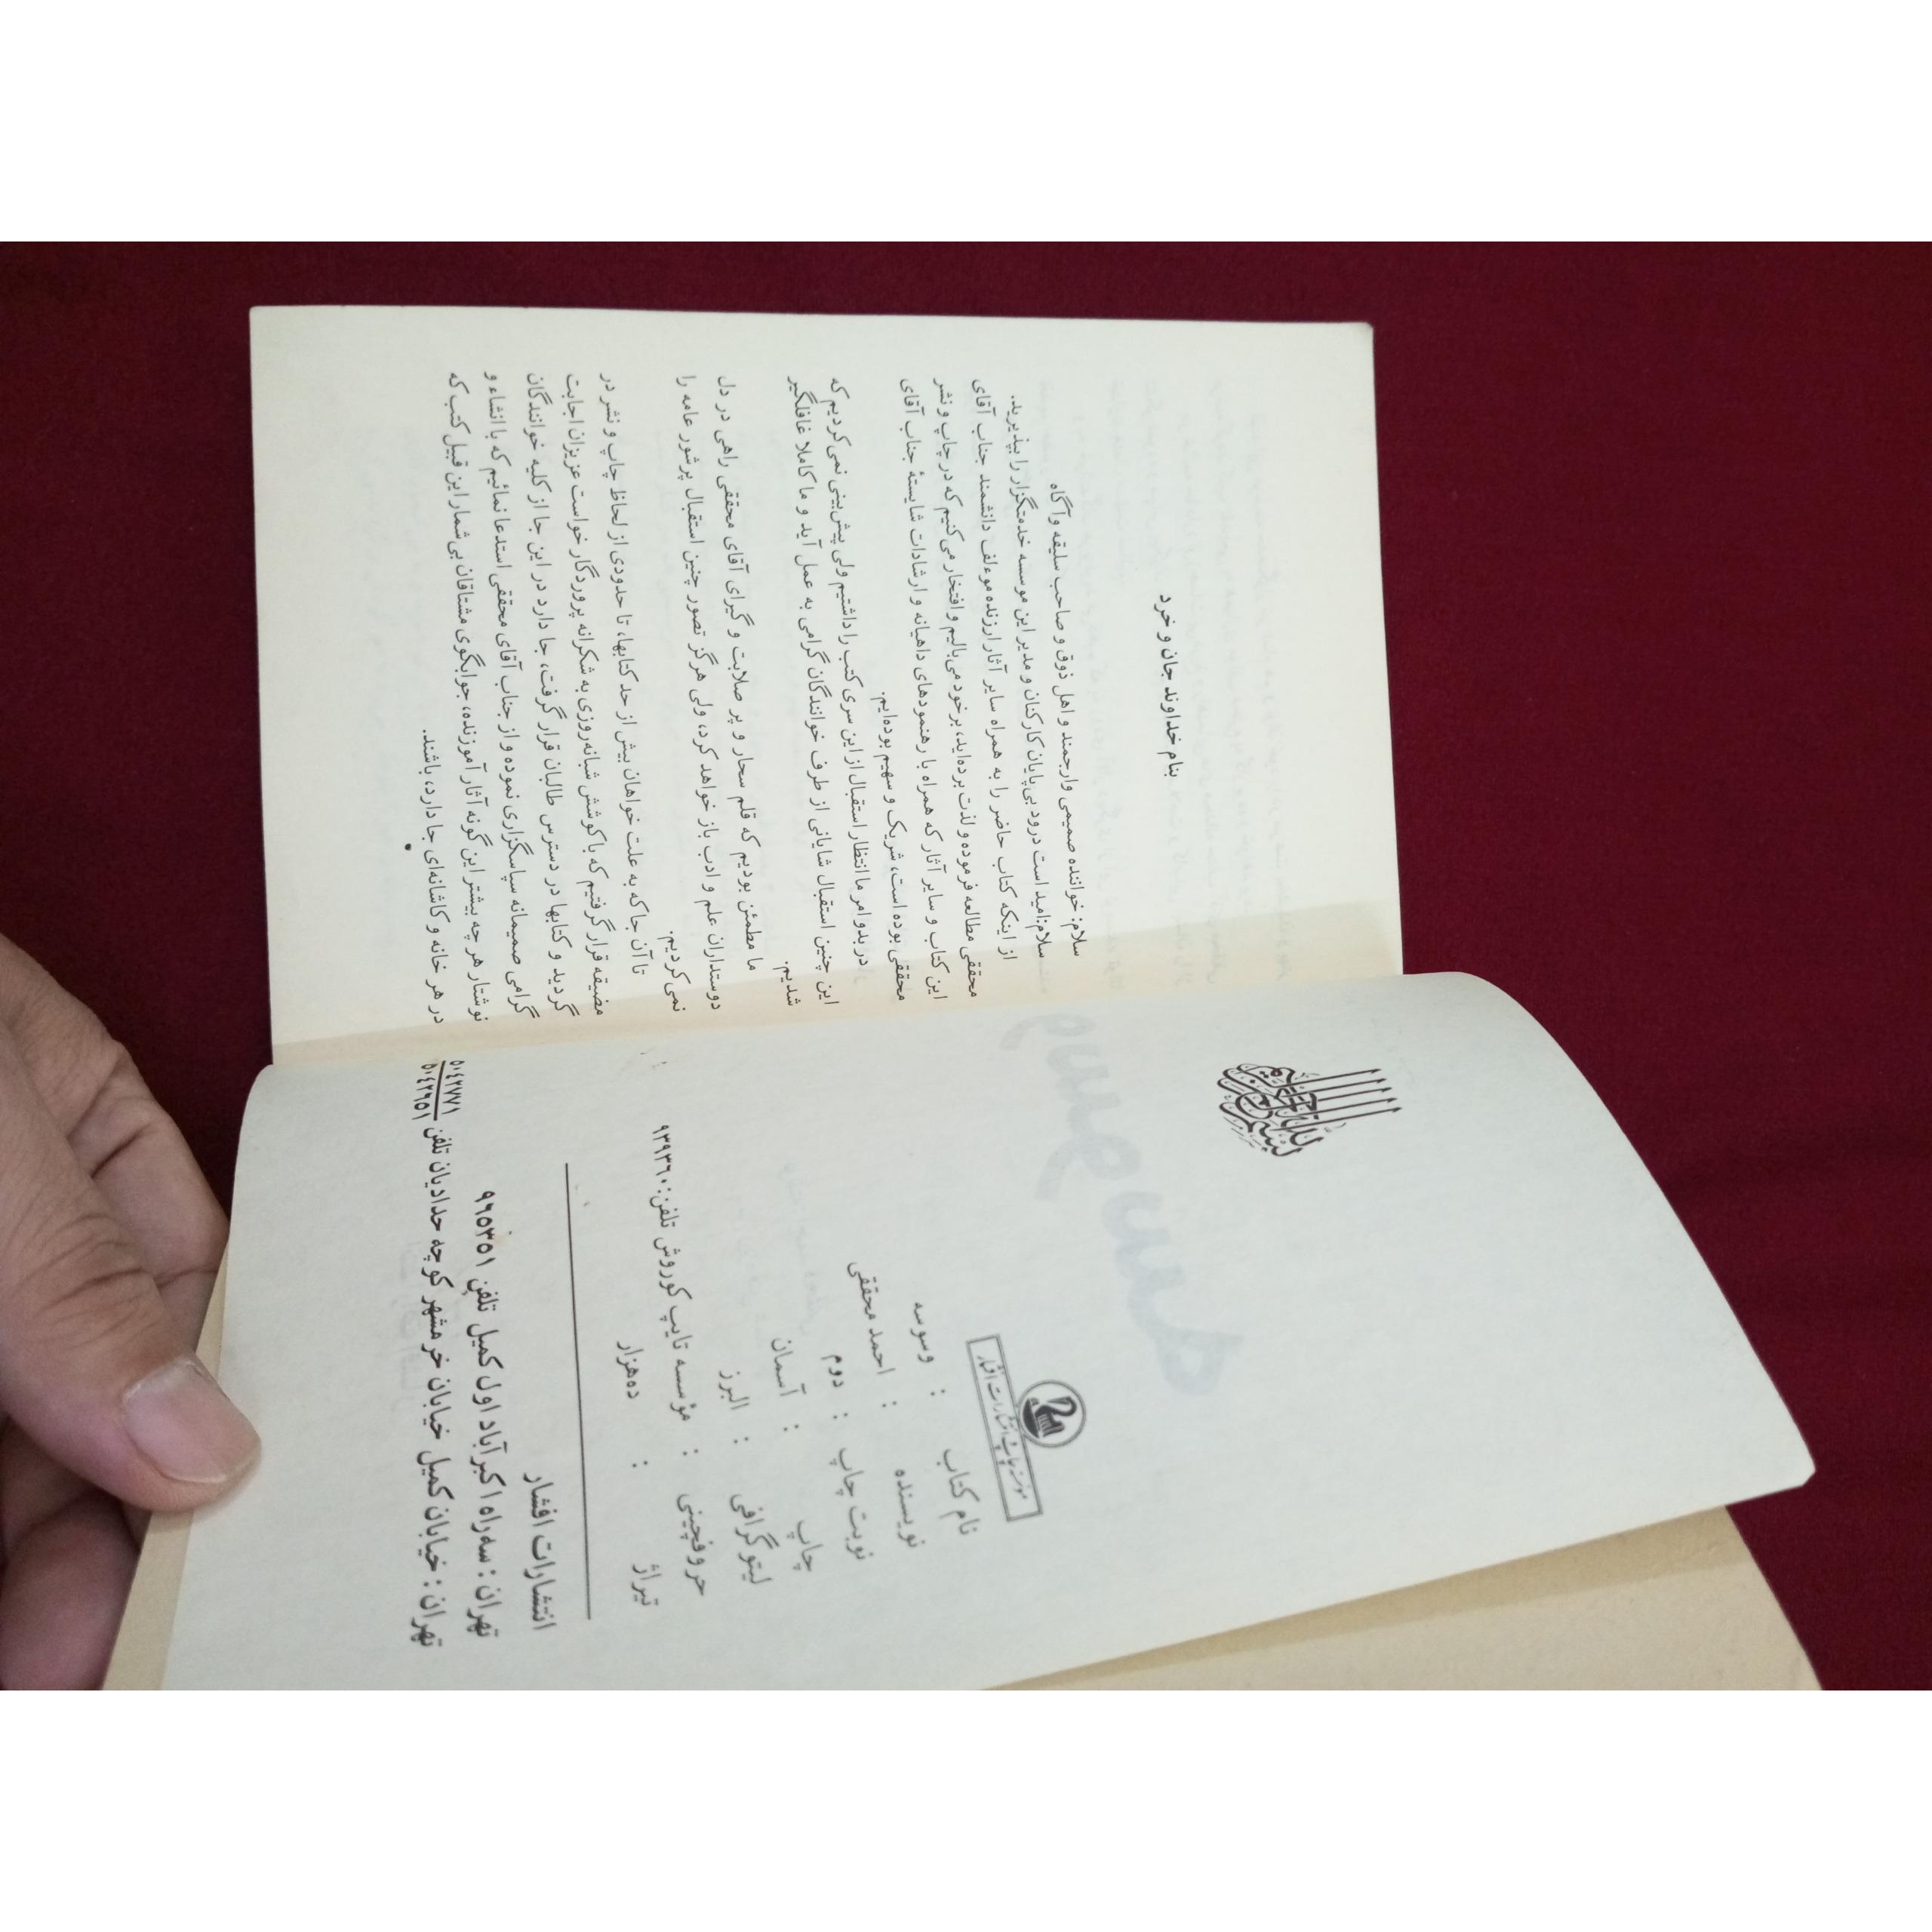 بسم الله الرحمن الرحیم
موسسه چاپ و انتشارات افشار
نام کتاب : وسوسه
نویسنده : احمد محققی
نوبت چاپ : دوم
چاپ : آسمان
لیتوگرافی : البرز
حروفچینی : مؤسسه تایپ کوروش تلفن: ۹۳۹۳۶۰
تیراژ : ده‌هزار
انتشارات افشار
تهران: سه‌راه اکبرآباد اول کمیل تلفن ۹۶۵۳۵۱
تهران: خیابان کمیل خیابان خرمشهر کوچه حدادیان تلفن ۵۰۴۲۷۷۱ ۵۰۴۲۶۵۱
بنام خداوند جان و خرد
سلام: خواننده صمیمی وارجمند و اهل ذوق و صاحب سلیقه وآگاه
سلام:امید است درود بی‌پایان کارکنان و مدیر این موسسه خدمتگزار را بپذیرید.
از اینکه کتاب حاضر را به همراه سایر آثار ارزنده موءلف دانشمند جناب آقای
محققی مطالعه فرموده و لذت برده‌اید، برخود می‌بالیم وافتخار می‌کنیم که در چاپ و نشر
این کتاب و سایر آثار که همراه با رهنمودهای داهیانه و ارشادات شایستهٔ جناب آقای
محققی بوده است، شریک و سهیم بوده‌ایم.
در بدو امر ما انتظار استقبال از این سری کتب را داشتیم ولی پیش‌بینی نمی‌کردیم که
این چنین استقبال شایانی از طرف خوانندگان گرامی به عمل آید و ما کاملا غافلگیر
شدیم.
ما مطمئن بودیم که قلم سحار و پر صلابت و گیرای آقای محققی راهی در دل
دوستداران علم و ادب باز خواهد کرد، ولی هرگز تصور چنین استقبال پرشور عامه را
نمی‌کردیم.
تا آن جا که به علت خواهان بیش از حد کتابها، تا حدودی از لحاظ چاپ و نشر در
مضیقه قرار گرفتیم که با کوشش شبانه‌روزی به شکرانه پروردگار خواست عزیزان اجابت
گردید و کتابها در دسترس طالبان قرار گرفت، جا دارد در این جا از کلیه خوانندگان
گرامی صمیمانه سپاسگزاری نموده و از جناب آقای محققی استدعا نمائیم که با انشاء و
نوشتار هر چه بیشتر این گونه آثار آموزنده، جوابگوی مشتاقان بی‌شمار این قبیل کتب که
در هر خانه و کاشانه‌ای جا دارد، باشند.